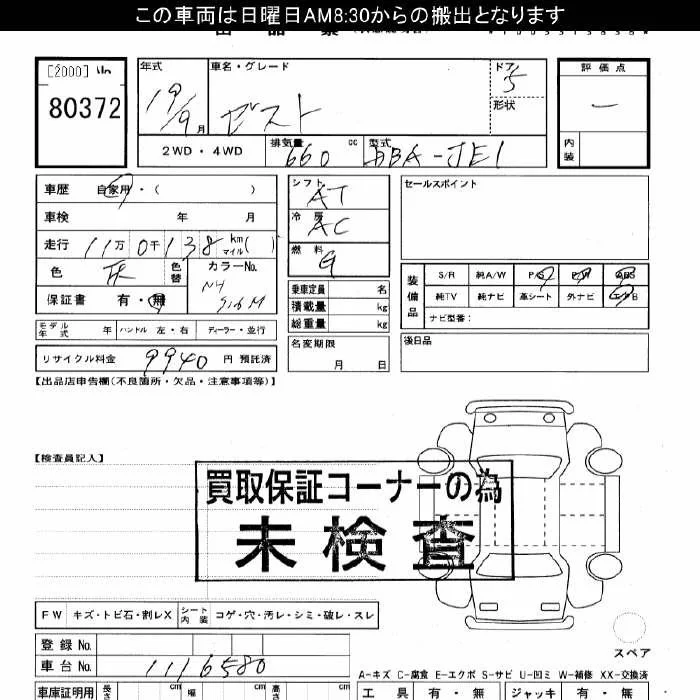 この車両は日曜日AM8:30からの搬出となります
[2000]
80372
年式
19/9 月
車名・グレード
ゼスト
ドア
5
形状
評価点
内装
2WD・4WD
排気量
660 cc
型式
DBA-JE1
車歴 自家用・( )
車検 年 月
走行 11万 0千 138 km マイル ( )
色
色替
カラーNo.
NH
保証書 有・無
モデル年式 年 ハンドル 左・右 ディーラー・並行
リサイクル料金 9940 円 預託済
シフト
AT
冷房
AC
燃料
G
乗車定員 名
積載量 kg
総重量 kg
名変期限
月 日
セールスポイント
装備品
S/R 純A/W P/S P/W ABS
純TV 純ナビ 革シート 外ナビ エアB
ナビ型番:
後日品
【出品店申告欄(不良箇所・欠品・注意事項等)】
【検査員記入】
買取保証コーナーの為
未検査
FW キズ・トビ石・割レX シート内装 コゲ・穴・汚レ・シミ・破レ・スレ
登録No.
車台No. 1116580
スペア
A-キズ C-腐食 E-エクボ S-サビ U-凹ミ W-補修 XX-交換済
車庫証明用 長さ cm 幅 cm 高さ cm
工具 有・無 ジャッキ 有・無